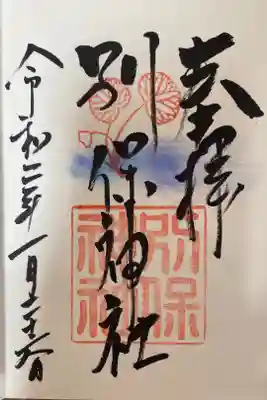 奉拝
別保神社
令和二年一月
別保
神社